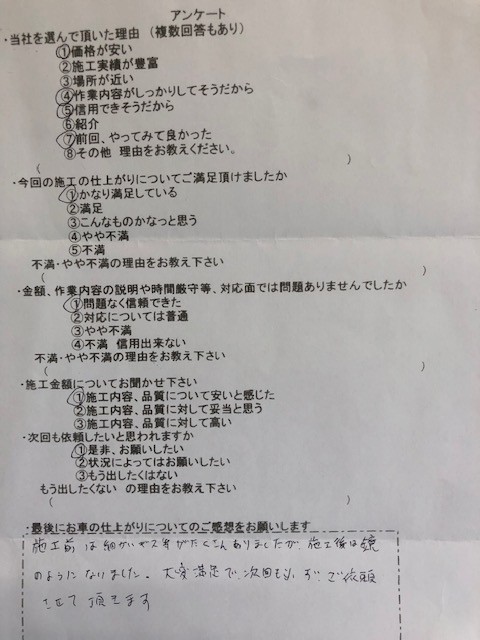 アンケート
・当社を選んで頂いた理由（複数回答もあり）
①価格が安い
②施工実績が豊富
③場所が近い
④作業内容がしっかりしてそうだから
⑤信用できそうだから
⑥紹介
⑦前回、やってみて良かった
⑧その他 理由をお教えください。
（ ）
・今回の施工の仕上がりについてご満足頂けましたか
①かなり満足している
②満足
③こんなものかなっと思う
④やや不満
⑤不満
不満・やや不満の理由をお教え下さい
（ ）
・金額、作業内容の説明や時間厳守等、対応面では問題ありませんでしたか
①問題なく信頼できた
②対応については普通
③やや不満
④不満 信用出来ない
不満・やや不満の理由をお教え下さい
（ ）
・施工金額についてお聞かせ下さい
①施工内容、品質について安いと感じた
②施工内容、品質に対して妥当と思う
③施工内容、品質に対して高い
・次回も依頼したいと思われますか
①是非、お願いしたい
②状況によってはお願いしたい
③もう出したくはない
もう出したくない の理由をお教え下さい
（ ）
・最後にお車の仕上がりについてのご感想をお願いします
施工前は細かいキズ等がたくさんありましたが、施工後は鏡
のようになりました。大変満足で、次回も必ず、ご依頼
させて頂きます